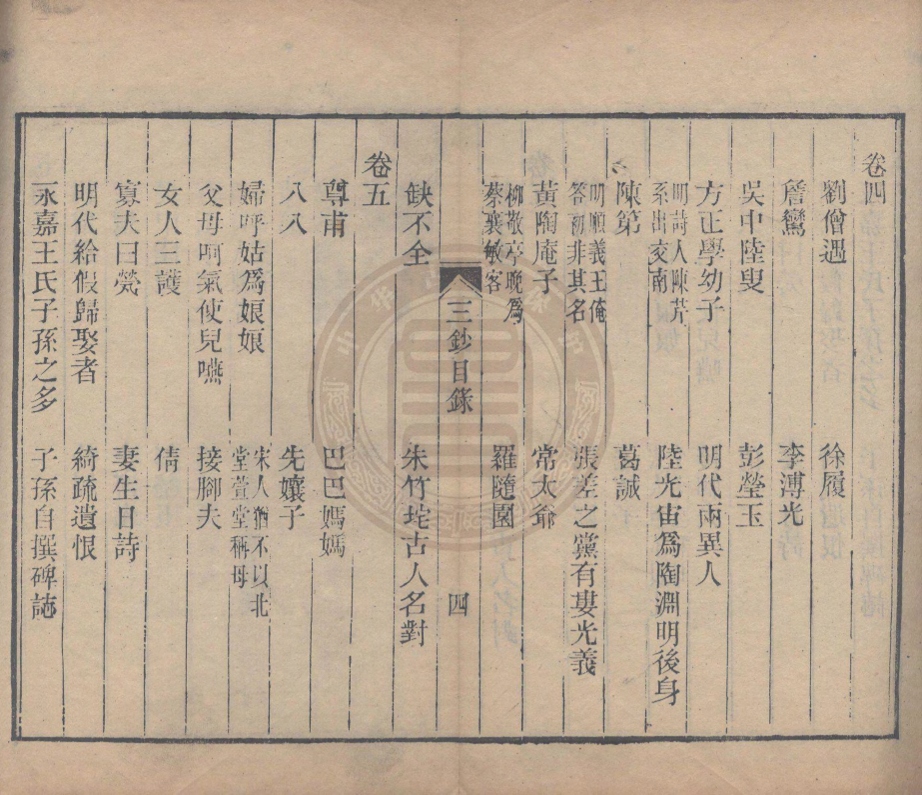 卷四
劉僧遇　徐履
詹鸞　李溥光
吳中陸叟　彭瑩玉
方正學幼子　明代兩異人
明詩人陳芹
系出交南　陸光宙爲陶淵明後身
陳第　葛誠
明順義王俺
答初非其名　張差之黨有婁光義
黃陶庵子　常太爺
柳敬亭晚爲
蔡襄敏客　羅隨園
三鈔目錄　四
缺不全　朱竹垞古人名對
卷五
尊甫　巴巴媽媽
八八　先孃子
婦呼姑爲娘娘　宋人猶不以北
堂萱堂稱母
父母呵氣使兒嚥　接腳夫
女人三護　倩
寡夫曰煢　妻生日詩
明代給假歸娶者　綺疏遺恨
永嘉王氏子孫之多　子孫自撰碑誌